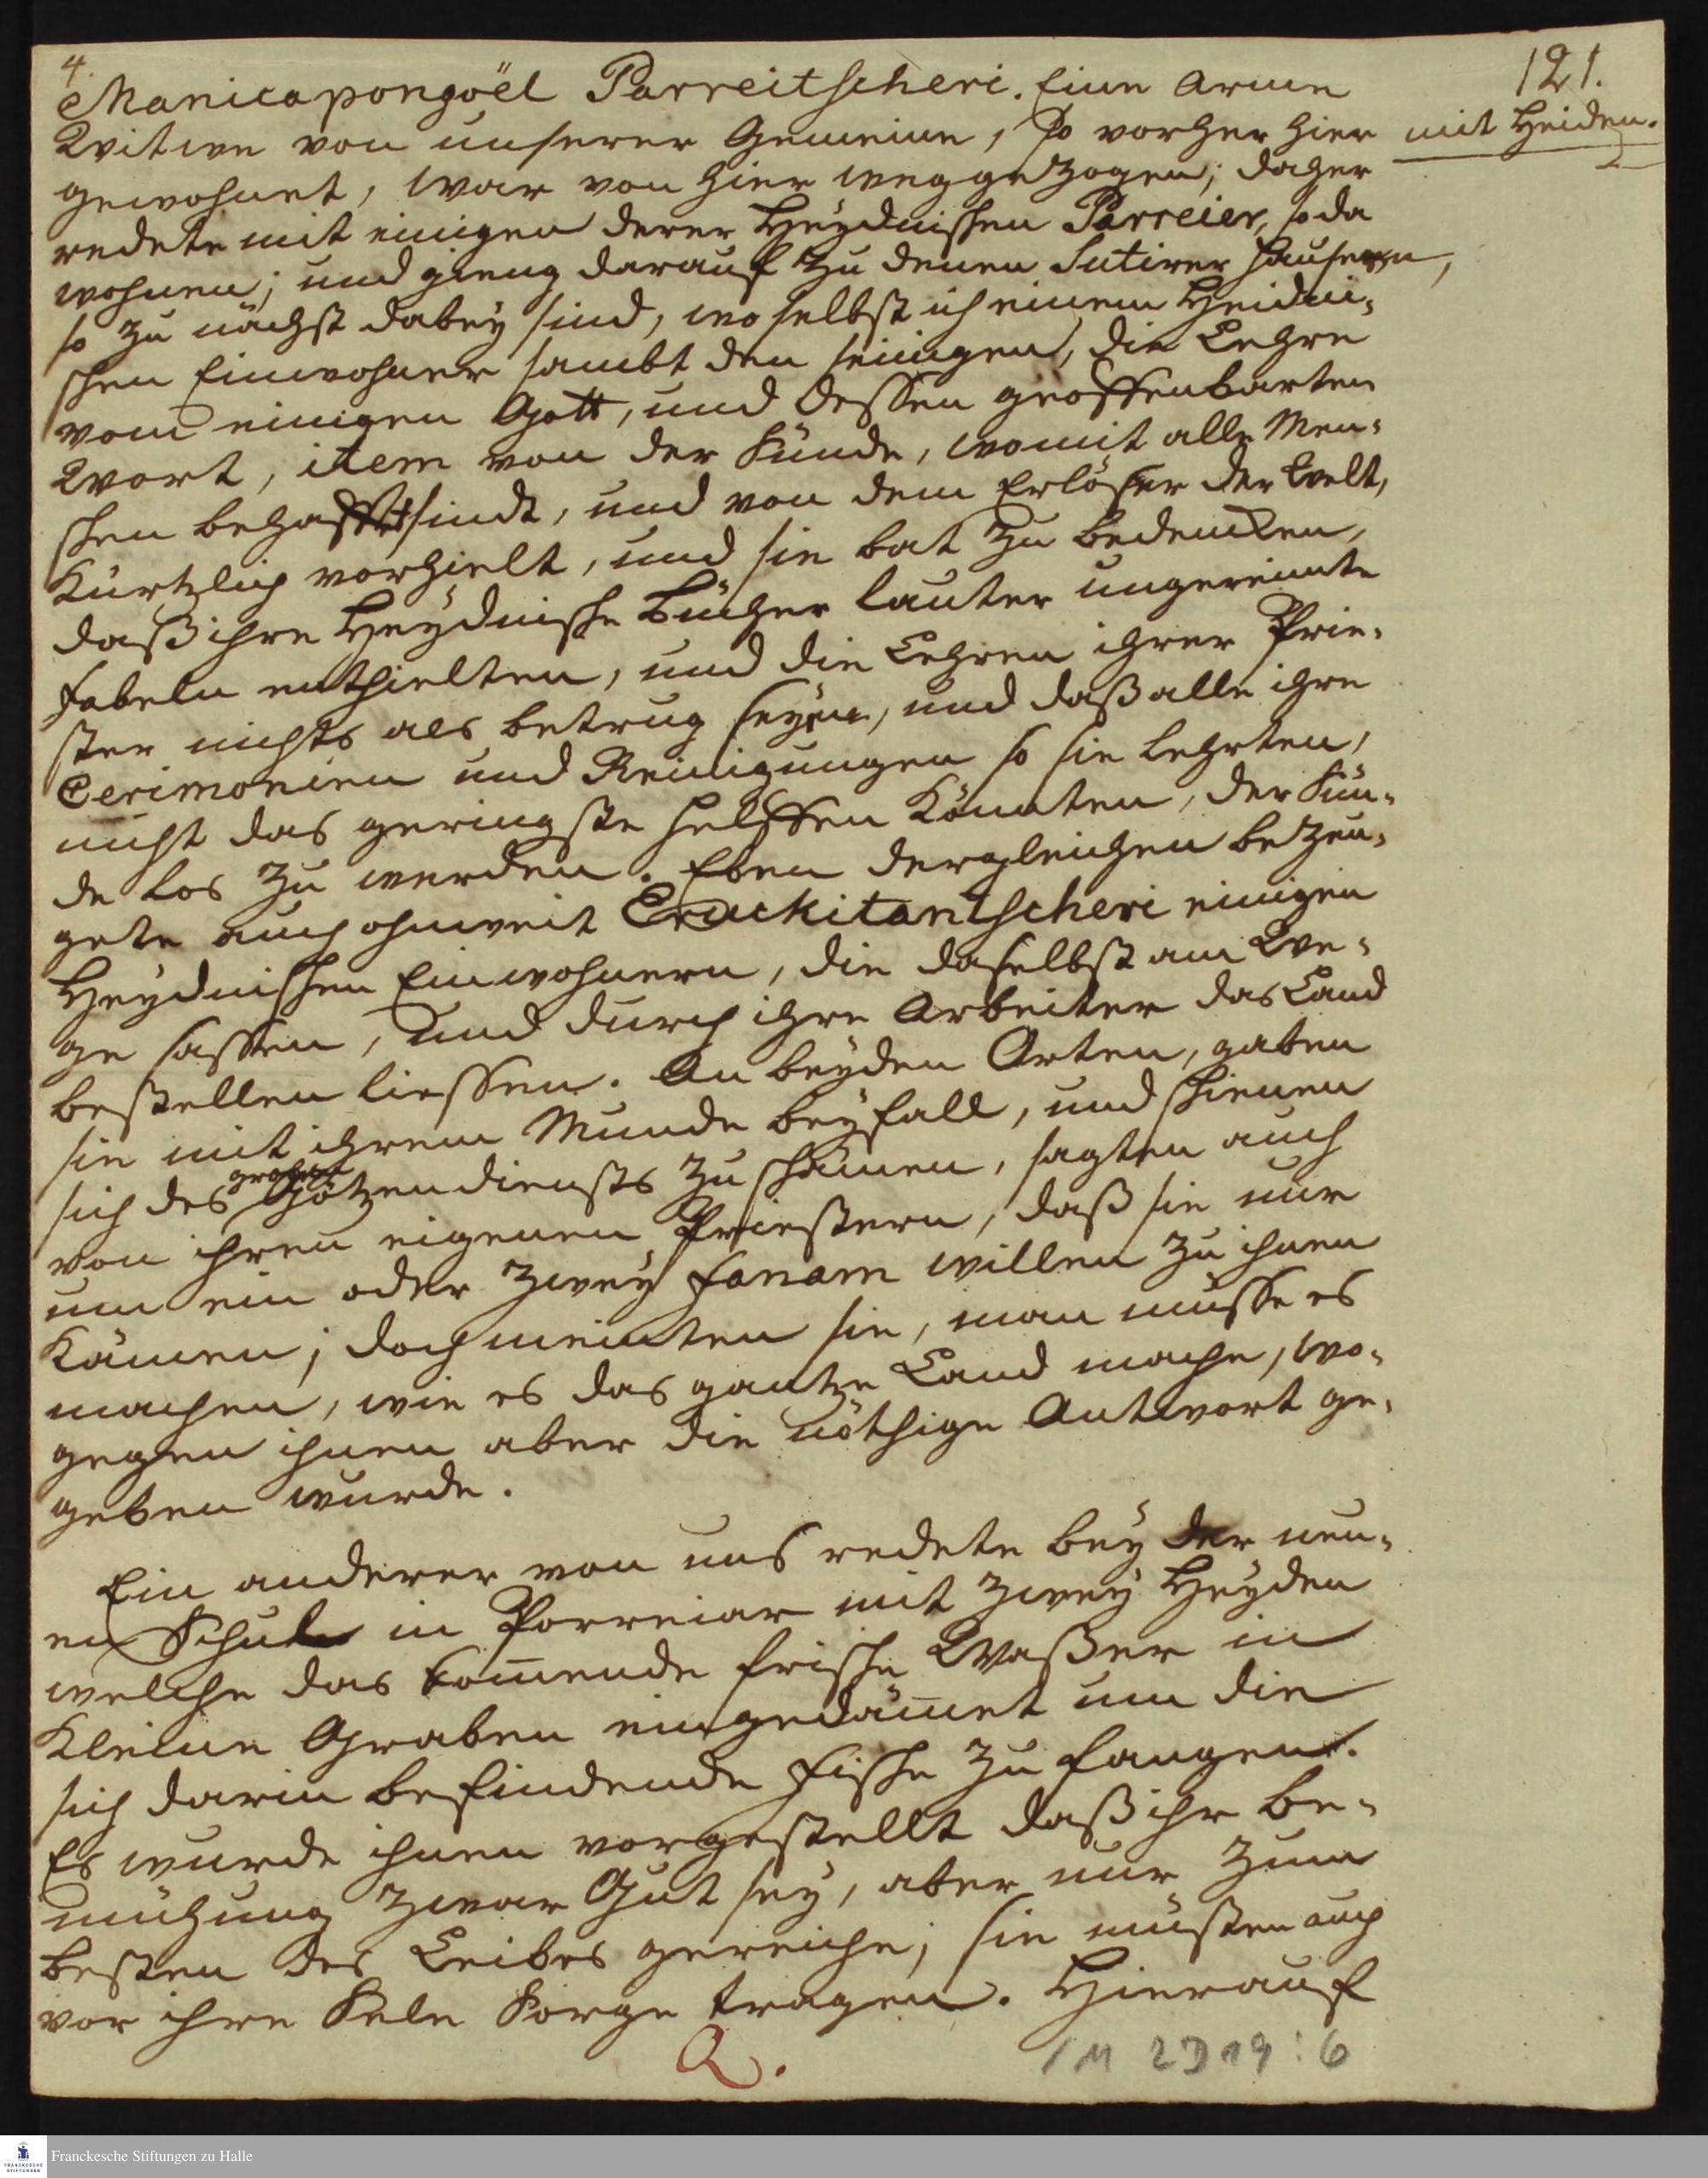 4.
121.
Manicapongöel Parreitscheri. Eine Arme
Witwe von unserer Gemeine, so vorher hier
mit Heiden.
gewohnet, war von hier weggezogen; daher
redete mit einigen derer Heydnischen Parreier, so da
wohnen; und gieng darauf zu denen Sutirer Häusern,
so zu nächst dabey sind, woselbst ich einem Heidni-
schen Einwohner sambt den seinigen, die Lehre
vom einigen Gott, und dessen geoffenbarten
Wort, item von der Sünde, womit alle Men-
schen behafftet sindt, und von dem Erlöser der Welt,
Kürtzlich vorhielt, und sie bat zu bedencken,
daß ihre Heydnische Bücher lauter ungereimte
Fabeln enthielten, und die Lehren ihrer Prie-
ster nichts als betrug seyen, und daß alle ihre
Cerimonien und Reinigungen so sie lehrten,
nicht das geringste helffen Könnten, der Sün-
de los zu werden. Eben dergleichen bezeu-
gete auch ohnweit Eruckitantscheri einigen
Heydnischen Einwohnern, die daselbst am We-
ge sassen, und durch ihre Arbeiter das Land
bestellen liessen. An beyden Orten, gaben
sie mit ihrem Munde beyfall, und schienen
sich des Götzendiensts zu schämen, sagten auch
von ihren eigenen Priestern, daß sie nur
um ein oder zwey Fanam willen zu ihnen
Kämen; doch meinten sie, man müsse es
machen, wie es das gantze Land mache, wo-
gegen ihnen aber die nöthige Antwort ge-
geben wurde.
Ein anderer von uns redete bey der neu-
en Schule in Porreiar mit zwey Heyden
welche das kom̄ende frische Waßer in
Kleine Graben eingedäm̄et um die
sich darin befindende Fische zu fangen.
Es wurde ihnen vorgestellt daß ihr be-
mühung zwar Gut sey, aber nur zum
besten des Leibes gereiche; sie müßten auch
vor ihre Sele Sorge tragen. Hierauf
Q.
1 M 2 D 19 : 6
FRANCKESCHE STIFTUNGEN
Franckesche Stiftungen zu Halle